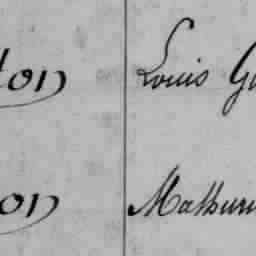 ton Louis Gu
on Mathuri